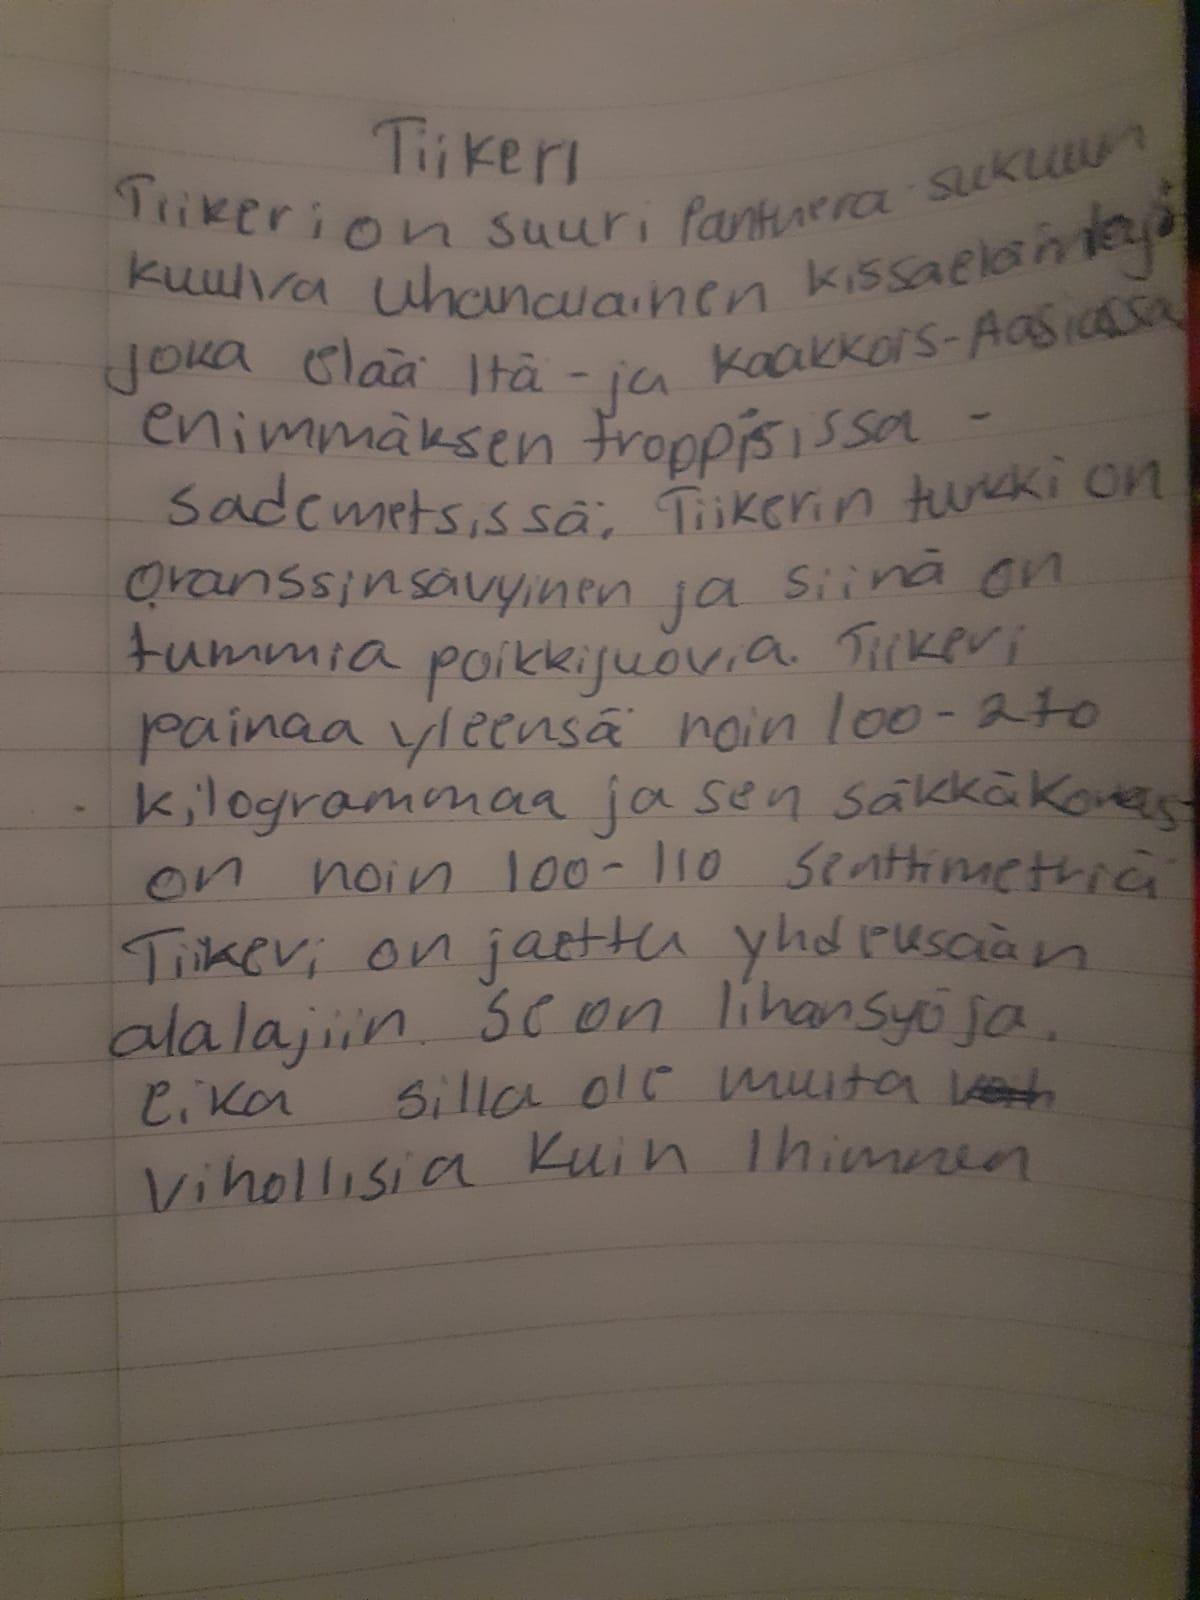 Tiikeri
Tiikeri on suuri Panthera sukuun
kuuluva uhanalainen kissaeläinlaji
joka elää Itä - ja Kaakkois-Aasiassa
enimmäksen trooppisissa -
sademetsissä. Tiikerin turkki on
oranssinsävyinen ja siinä on
tummia poikkijuovia. Tiikeri
painaa yleensä noin 100-270
kilogrammaa ja sen säkkäkorkeus
on noin 100-110 senttimetriä
Tiikeri on jaettu yhdeksään
alalajiin. Se on lihansyöjä.
eika silla ole muita
vihollisia kuin Ihiminen